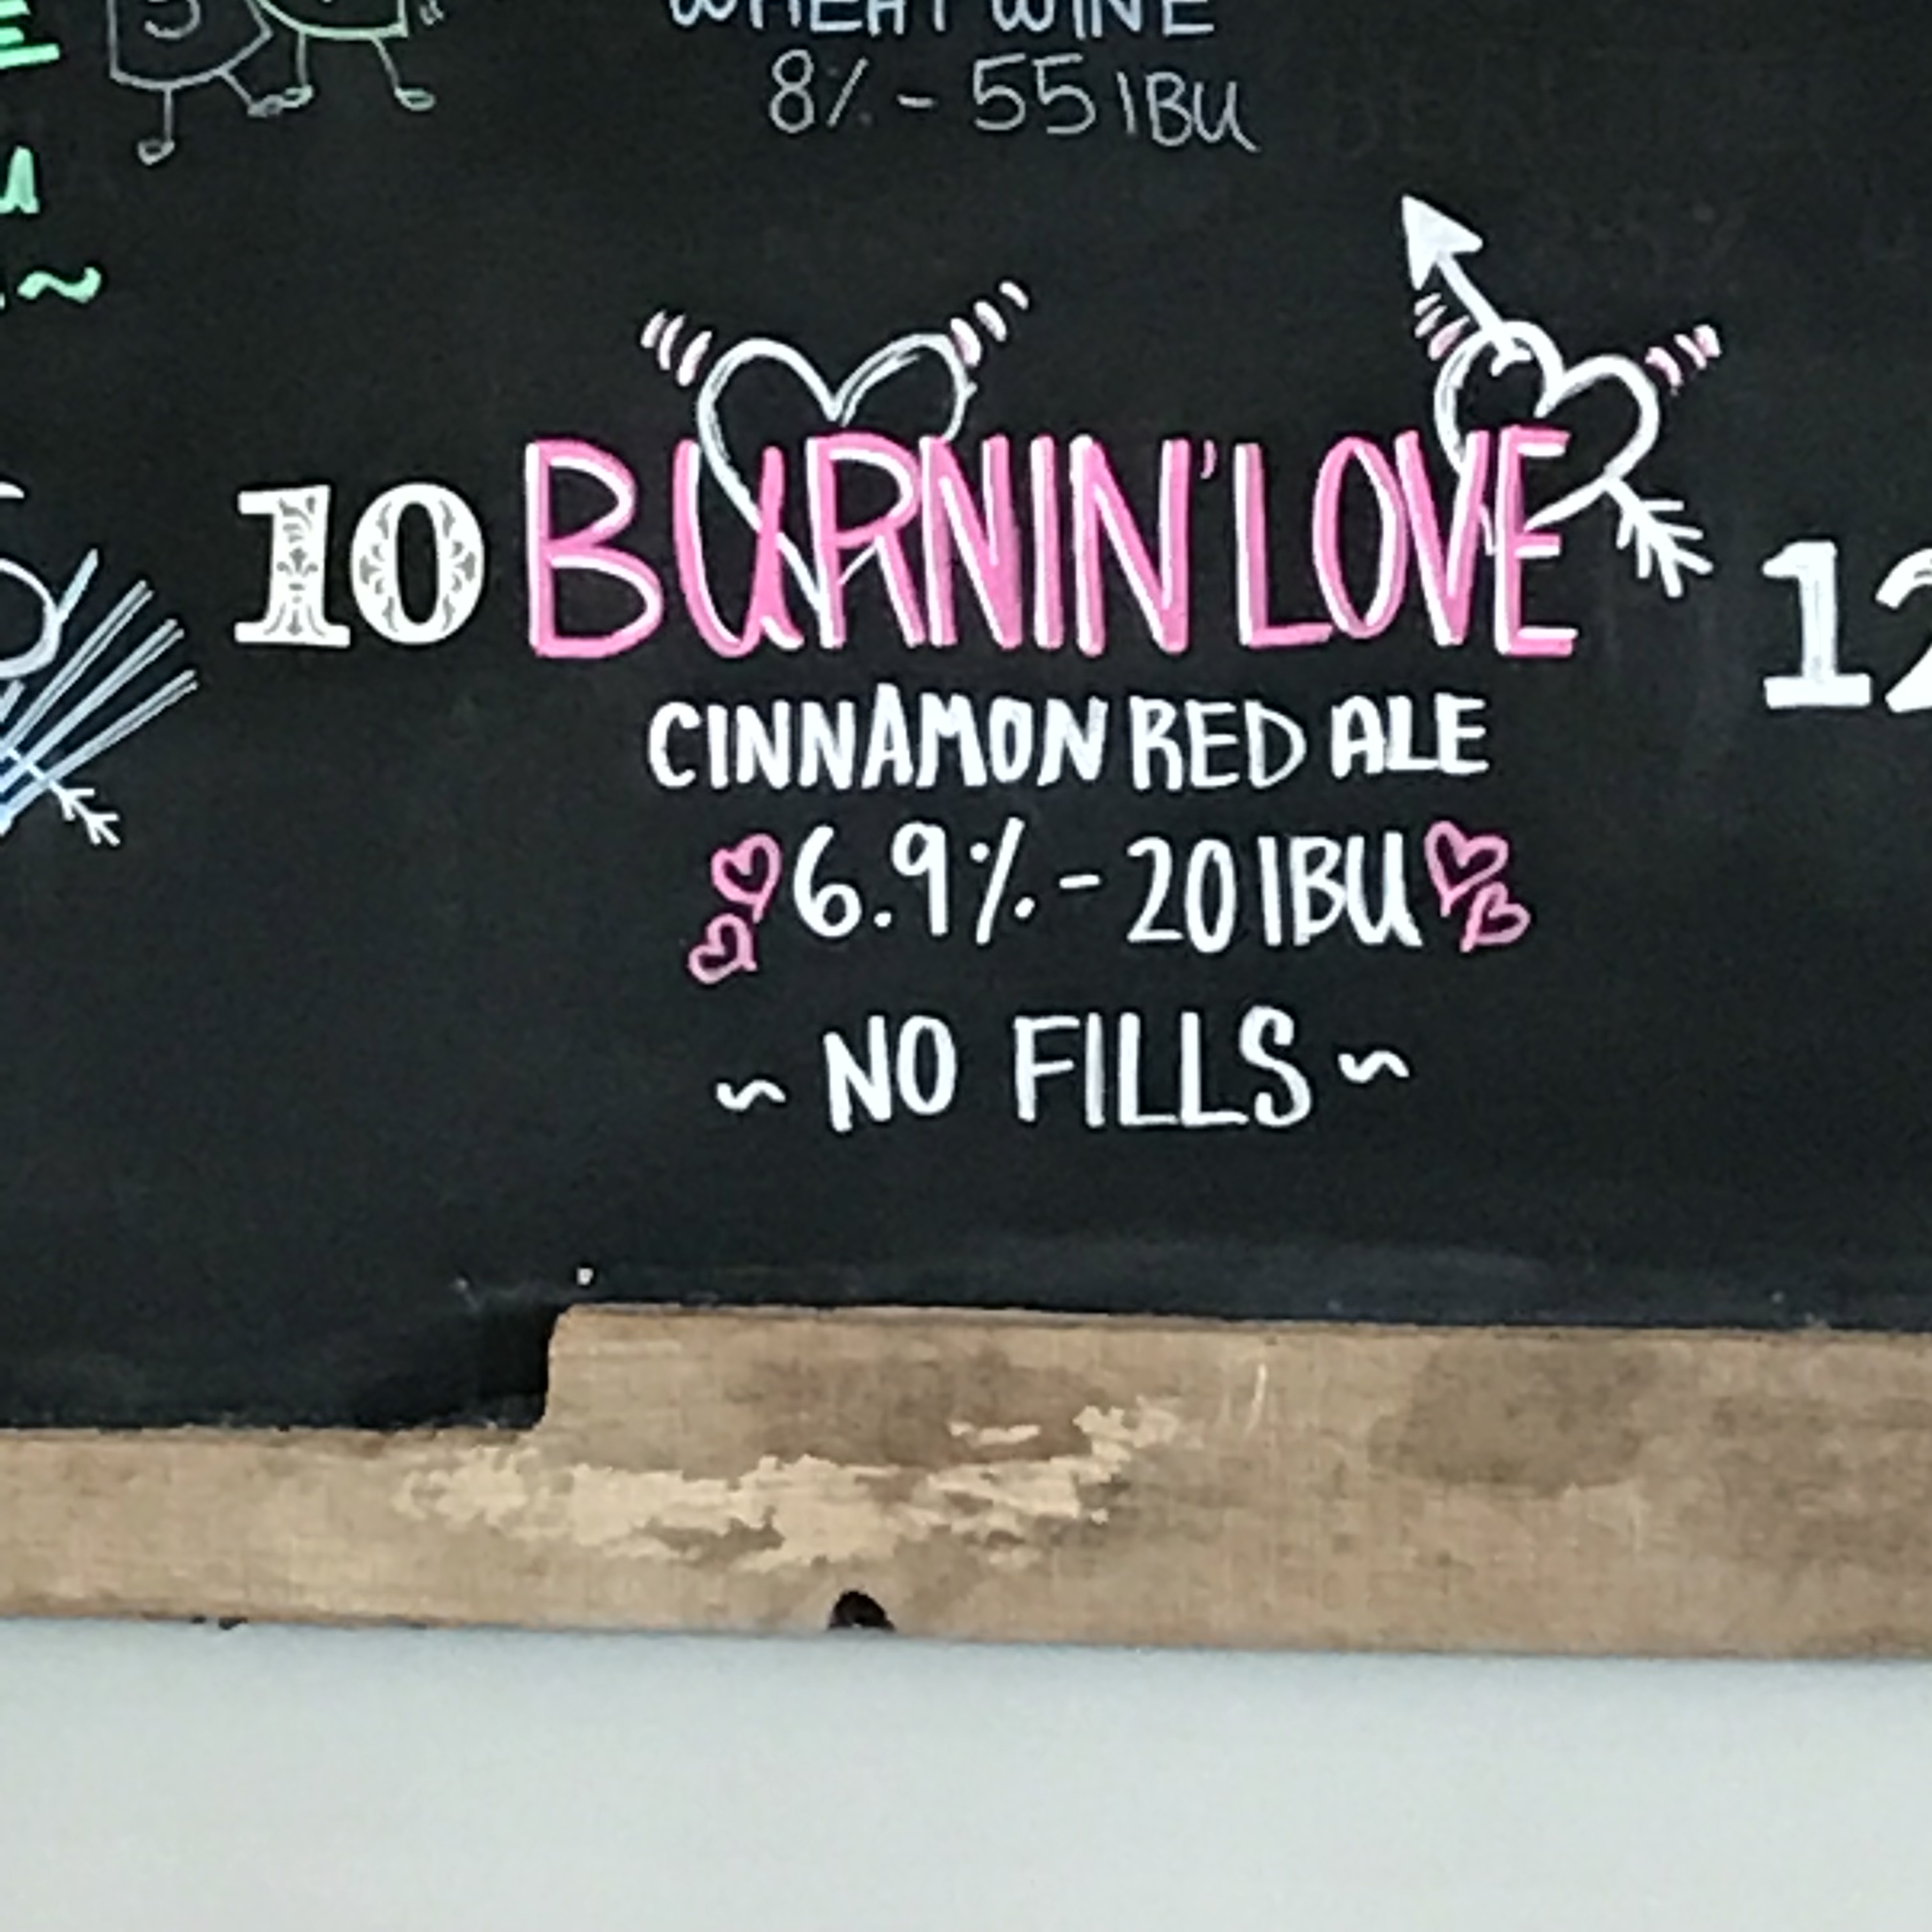 WHEAT WINE
8% - 55 IBU
10 BURNIN' LOVE
CINNAMON RED ALE
6.9% - 20 IBU
~ NO FILLS ~
12